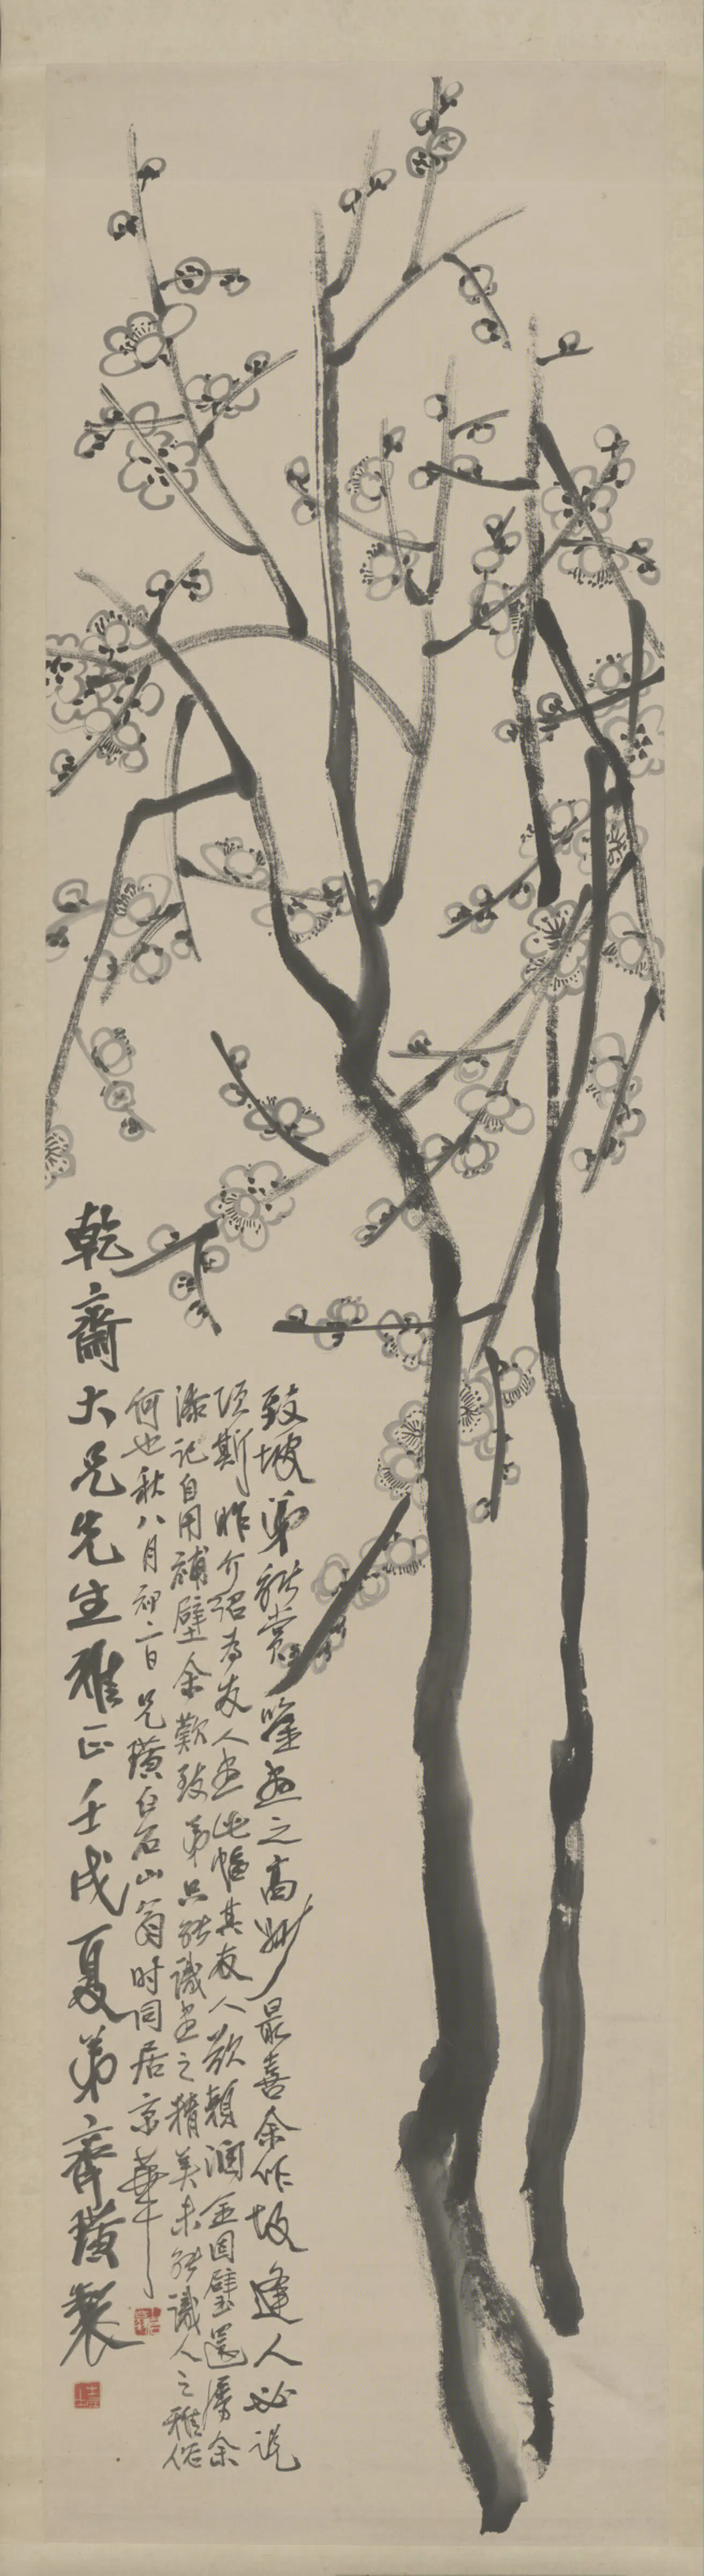 致坡弟能賞鑒畫之高妙最喜余作故逢人必說
項斯昨介紹為友人畫此幅其友人欲賴潤金因璧還屬余
添記自用補壁余歎致弟只能識畫之精美未能識人之雅俗
何也秋八月初二日兄璜白石山翁時同居京華
乾齋大兄先生雅正壬戌夏弟齊璜製